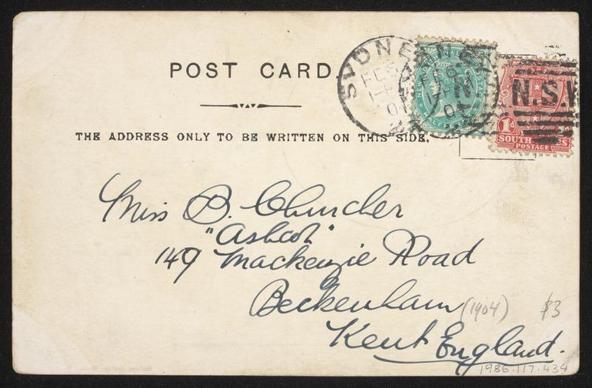 POST CARD.
THE ADDRESS ONLY TO BE WRITTEN ON THIS SIDE.
SYDNEY
N.S.W
1d
SOUTH
POSTAGE
Miss B. Churcher
"Ascot"
149 Mackenzie Road
Beckenham
(1904)
$3
Kent England.
1986.117.434